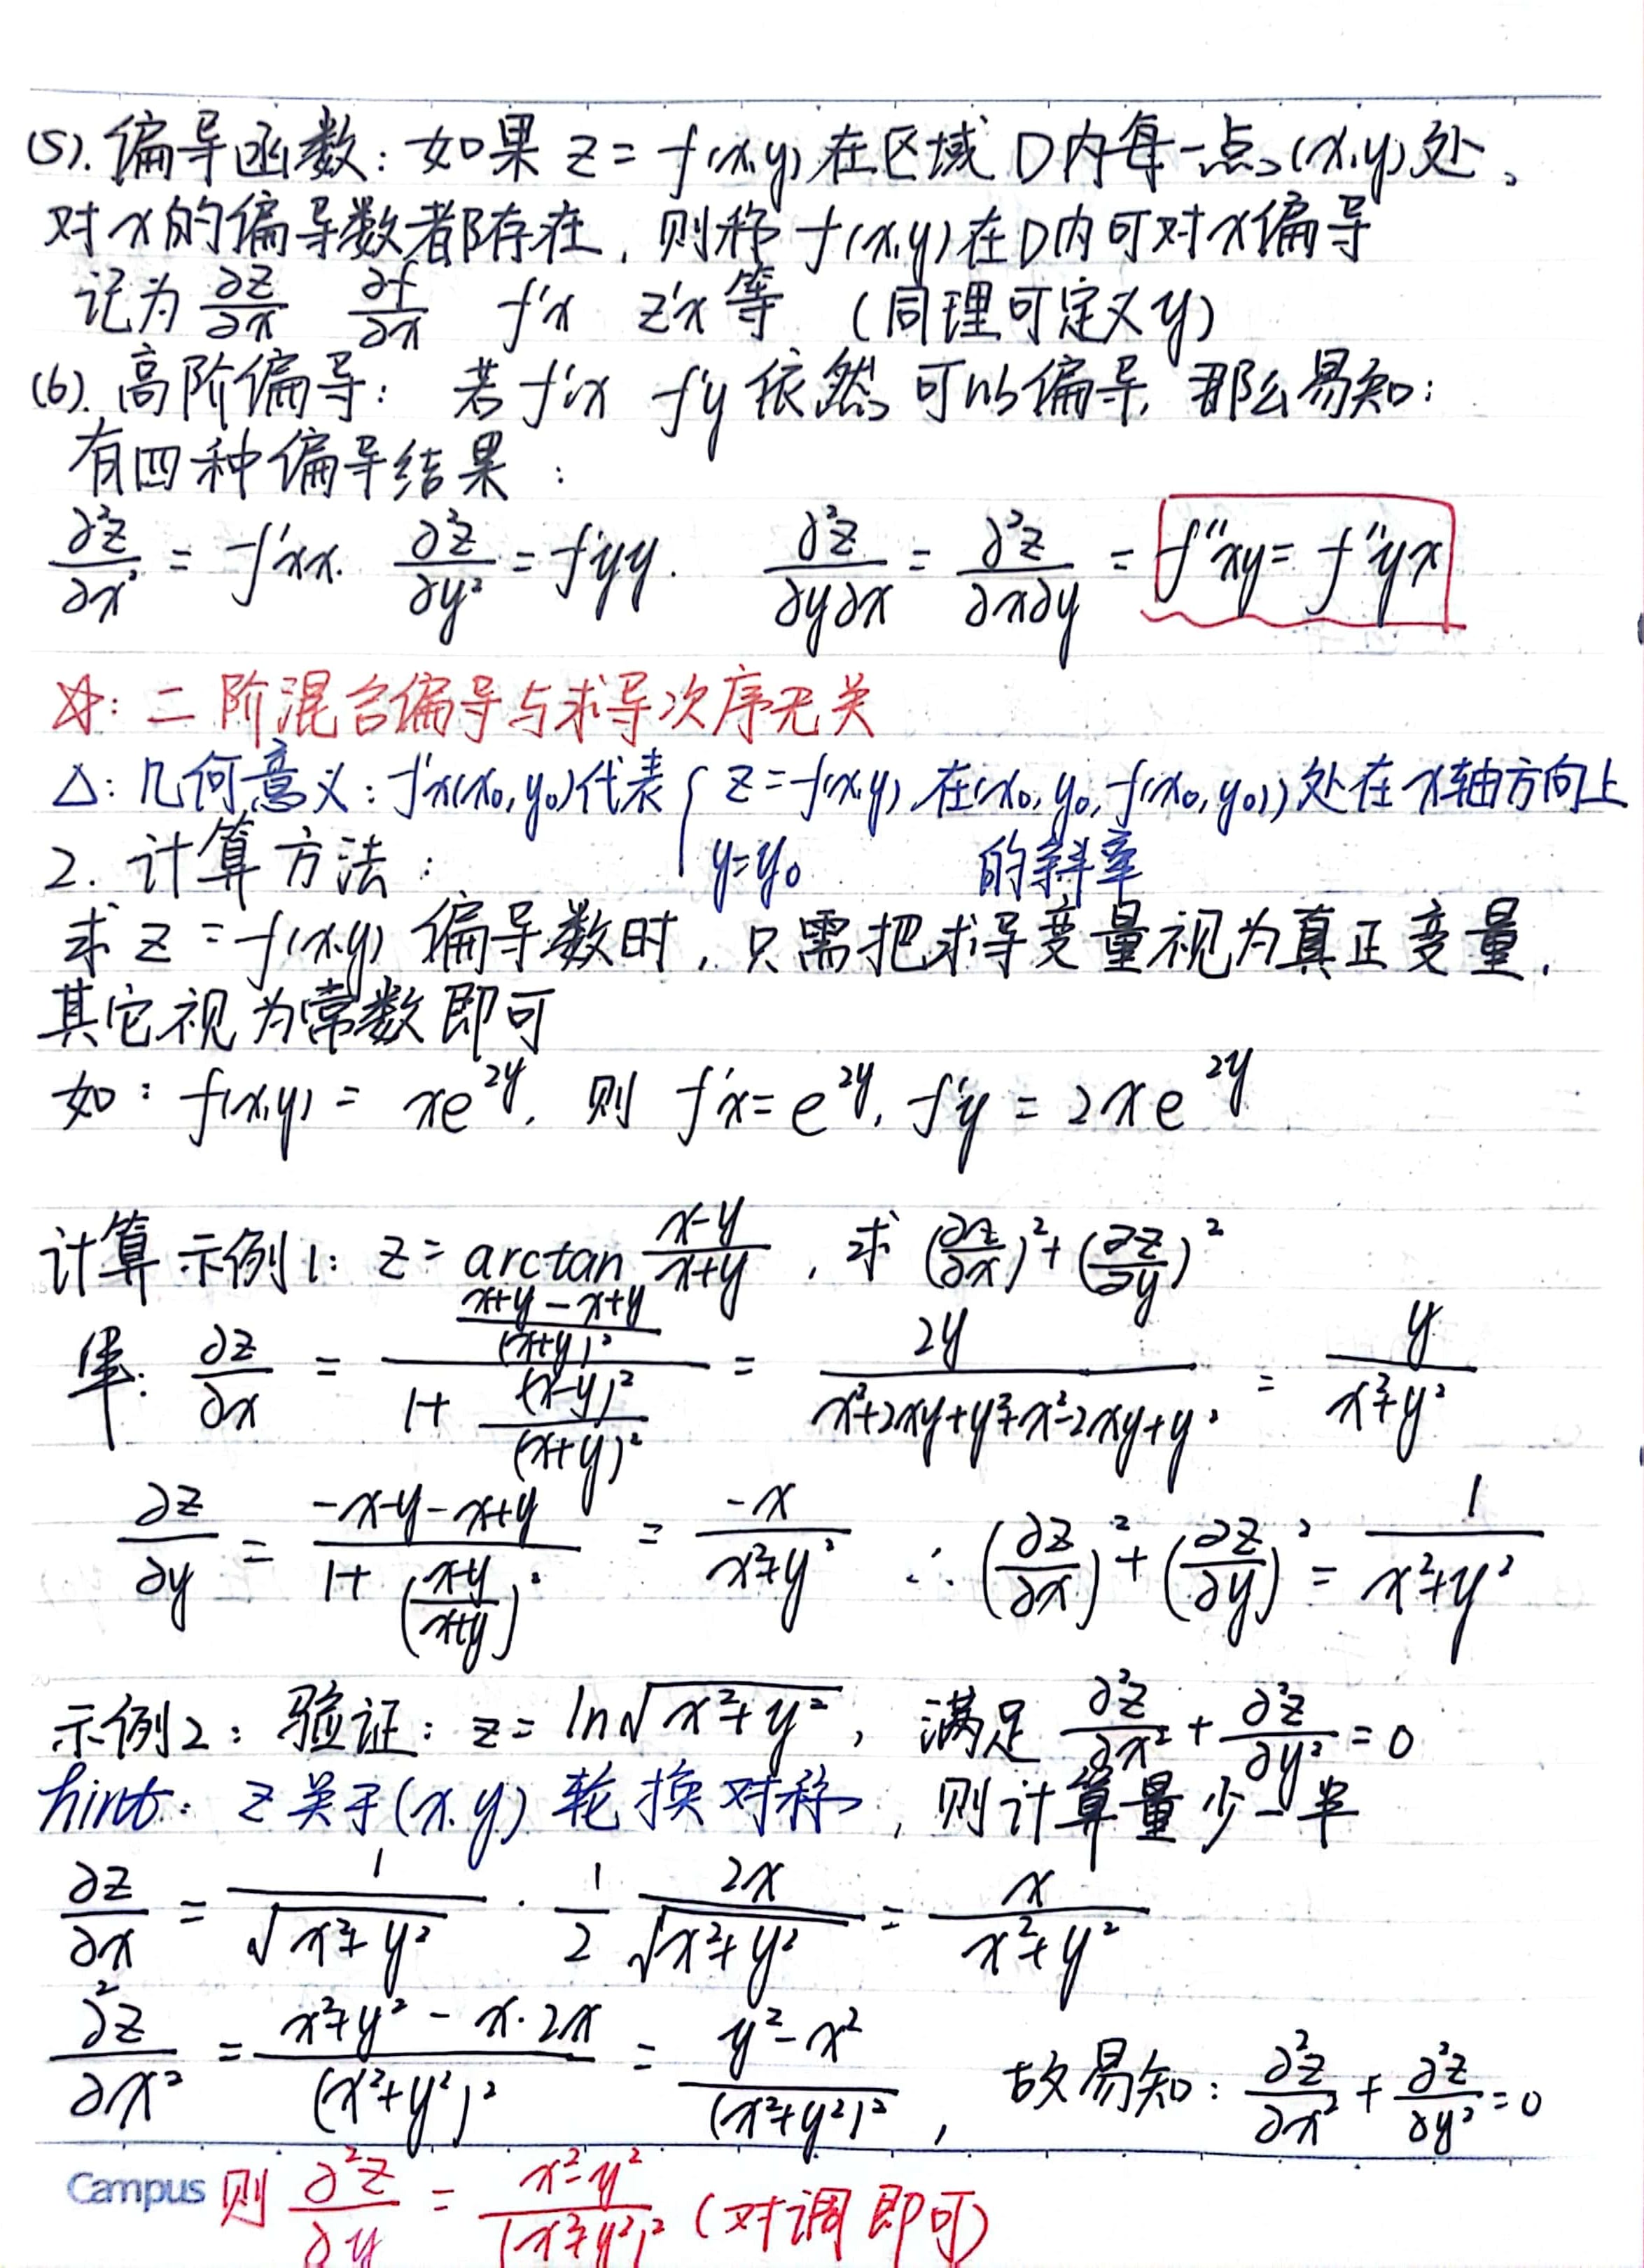 (5). 偏导函数: 如果 z = f(x,y) 在区域 D内每一点(x,y)处,
对x的偏导数都存在, 则称 f(x,y)在D内可对x偏导
记为 ∂z/∂x ∂f/∂x f'x z'x 等 (同理可定义y)
(6). 高阶偏导: 若 f'x f'y 依然可以偏导, 那么易知:
有四种偏导结果:
∂²z/∂x² = f'xx. ∂²z/∂y² = f'yy. ∂²z/∂y∂x = ∂²z/∂x∂y = f''xy = f''yx
☆: 二阶混合偏导与求导次序无关
△: 几何意义: f'x(x₀,y₀)代表 { z=f(x,y) 在(x₀, y₀, f(x₀,y₀))处在x轴方向上
y=y₀ 的斜率
2. 计算方法:
求 z = f(x,y) 偏导数时, 只需把求导变量视为真正变量,
其它视为常数即可
如: f(x,y) = xe^{2y}, 则 f'x = e^{2y}, f'y = 2xe^{2y}
计算示例1: z = arctan (x-y)/(x+y), 求 (∂z/∂x)² + (∂z/∂y)²
∂z/∂x = ((x+y-x+y)/(x+y)²)/(1+(x-y)²/(x+y)²) = 2y/(x²+2xy+y²+x²-2xy+y²) = y/(x²+y²)
∂z/∂y = (-x-y-x+y)/(1+((x-y)/(x+y))²) = -x/(x²+y²) ∴ (∂z/∂x)² + (∂z/∂y)² = 1/(x²+y²)
示例2: 验证: z = ln√(x²+y²), 满足 ∂²z/∂x² + ∂²z/∂y² = 0
hint: z关于(x.y)轮换对称, 则计算量少一半
∂z/∂x = 1/√(x²+y²) · 1/2 2x/√(x²+y²) = x/(x²+y²)
∂²z/∂x² = (x²+y²-x·2x)/(x²+y²)² = (y²-x²)/(x²+y²)², 故易知: ∂²z/∂x² + ∂²z/∂y² = 0
Campus 则 ∂²z/∂y = (x²-y²)/(x²+y²)² (对调即可)